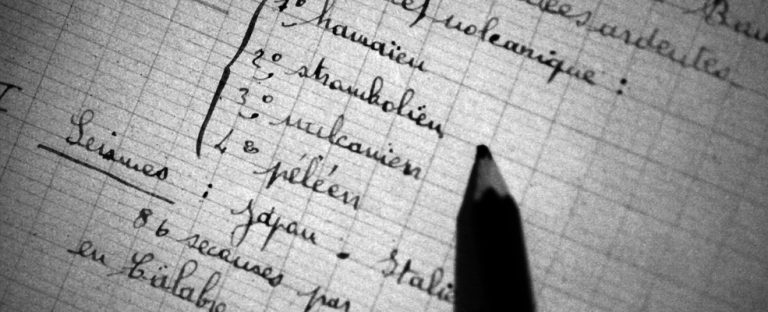 ardentes
volcanique :
1° hawaïen
2° strombolien
3° vulcanien
4° péléen
Seismes : Japon. Italie
86 secousses par
en Calabre